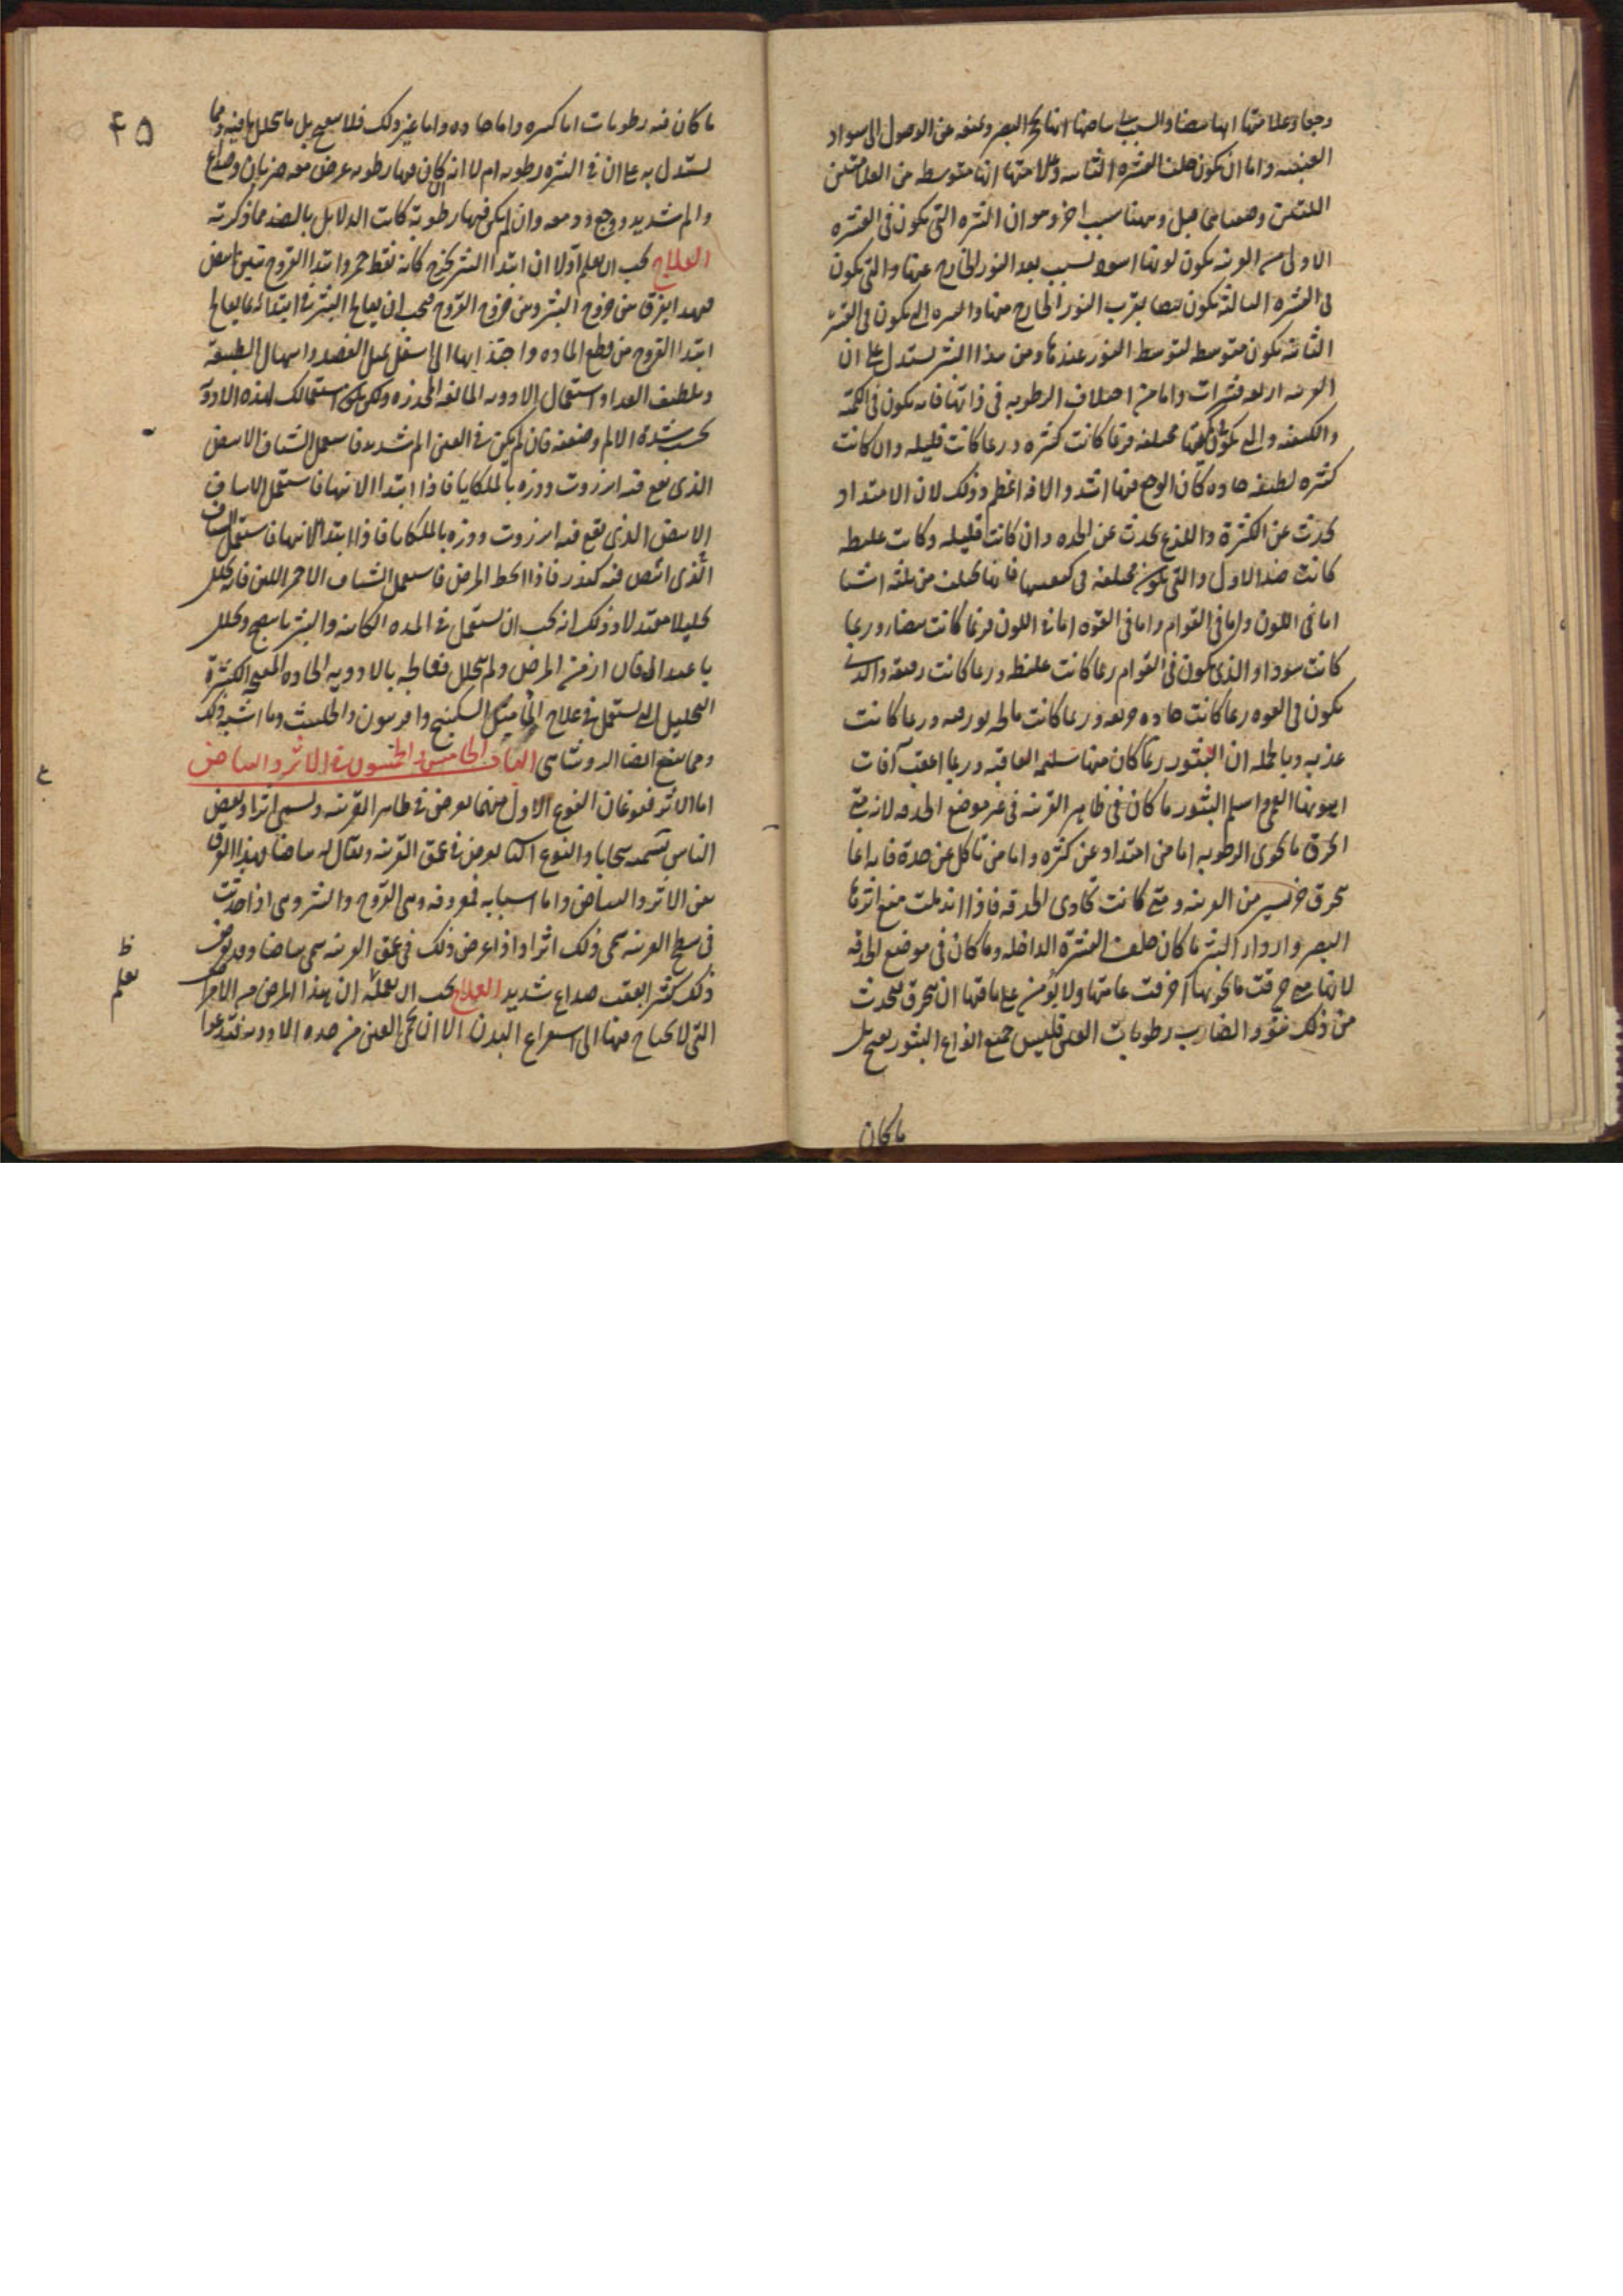 وجعا وعلامتها انها بيضا والسبب في بياضها انها تحجز البصر وتمنعه من الوصول الى سواد
العنبيه واما ان تكون خلف القشره الثانيه وعلامتها انها متوسطه من العلامتين
اللتين وصفنا قبل وههنا سبب اخر وهو ان البثره التى تكون فى القشره
الاولى من القرنيه يكون لونها اسود بسبب بعد النور الخارج عنها والتى تكون
فى القشره الثالثة تكون بيضا بقرب النور الخارج منها والبثره التى تكون فى القشره
الثانيه تكون متوسطه لتوسط النور عندها ومن هذا البثر يستدل على ان
القرنيه اربعه قشرات واما من اختلاف الرطوبه فى ذاتها فانه يكون فى الكميه
والكيفيه والتى تكون كميتها مختلفه فربما كانت كثيره وربما كانت قليله وان كانت
كثيره لطيفه حاده كان الوجع فيها اشد والافه اعظم وذلك لان الامتداد
يحدث عن الكثرة واللذع يحدث عن الحده وان كانت قليله وكانت غليظه
كانت ضد الاول والتى تكون مختلفه فى كيفيتها فانها تختلف من ثلثه اشيا
اما فى اللون واما فى القوام واما فى القوه اما فى اللون فربما كانت بيضا وربما
كانت سودا والذى يكون فى القوام ربما كانت غليظه وربما كانت رقيقه والذى
يكون فى القوه ربما كانت حاده حريفه وربما كانت مالحه بورقيه وربما كانت
عذبه وبالجمله ان البثور ربما كان منها سليمه العاقبه وربما اعقب آفات
اهونها العمى واسلم البثور ما كان فى ظاهر القرنيه فى غير موضع الحدقه لانه متى
انخرق ما يحوى الرطوبه اما من امتداد عن كثره واما من تاكل عن حدة فانه انما
ينخرق جزء يسير من القرنيه ومتى كانت تحاذى الحدقه فاذا اندملت منع اثرها
البصر واردا البثر ما كان خلف القشرة الداخله وما كان فى موضع الحدقه
لانها متى خرقت ما يحويها اخرقت عامتها ولا يؤمن على باقيها ان ينخرق فيحدث
من ذلك نتوء وانصباب رطوبات العين فليس جميع انواع البثور يعج بل
ما كان
٤٥
ما كان فيه رطوبات اما كثيره واما حاده واما غير ذلك فلا ينضج بل ما تحلل ما فيه ومما
يستدل به على ان فى البثره رطوبه ام لا انه ان كان فيها رطوبه عرض معه ضربان وصداع
والم شديد ووجع ودمعه وان لم يكن فيها رطوبة كانت الدلايل بالضد مما ذكرته
العلاج يجب ان تعلم اولا ان ابتدا البثر يخرج كانه نقط حمر وابتدا القروح تبين نقط بيض
فبهذا يفرق من خروج البثر ومن خروج القروح فيجب ان يعالج البثر فى ابتدائه بما يعالج
ابتدا القروح من قطع الماده واجتذابها الى اسفل بمثل الفصد واسهال الطبيعه
وتلطيف الغذا واستعمال الادويه المانعه المخدره ولكن يكون استعمالك لهذه الادوية
بحسب شدة الالم وضعفه فان لم يكن فى العين الم شديد فاستعمل الشياف الابيض
الذى يقع فيه انزروت وذره بالملكايا فاذا ابتدا الانتها فاستعمل الشياف
الابيض الذى يقع فيه انزروت وذره بالملكايا فاذا ابتدا الانتها فاستعمل الشياف
الذى ابيض فيه كندر فاذا انحط المرض فاستعمل الشياف الاحمر اللين فانه يحلل
تحليلا معتدلا وذلك انه يجب ان تستعمل فى المده الكامنه والبثر ما ينضج ويحلل
باعتدال فان ازمن المرض ولم يتحلل فعالجه بالادويه الحاده المنضجه الكثيرة
التحليل التى تستعمل فى علاج الما مثل السكبينج وافربيون والحلتيت وما اشبه ذلك
ومما ينفع ايضا الروشنايى الباب الخامس والخمسون فى الاثر والبياض
اما الاثر فنوعان النوع الاول منهما يعرض فى ظاهر القرنيه ويسمى اثرا وبعض
الناس تسميه سحابا والنوع الثانى يعرض فى عمق القرنيه ويقال له بياضا فهذا الفرق
بين الاثر والبياض واما اسبابه فمعروفه وهى القروح والبثر وهى اذا حدثت
فى سطح القرنيه سمى ذلك اثرا واذا عرض ذلك فى عمق القرنيه سمى بياضا وقد يعرض
ذلك كثيرا بعقب صداع شديد العلاج يجب ان تعلم ان هذا المرض من الامراض
التى لا يحتاج فيها الى استفراغ البدن الا ان يحمى العين من حده الادويه فتدعوا